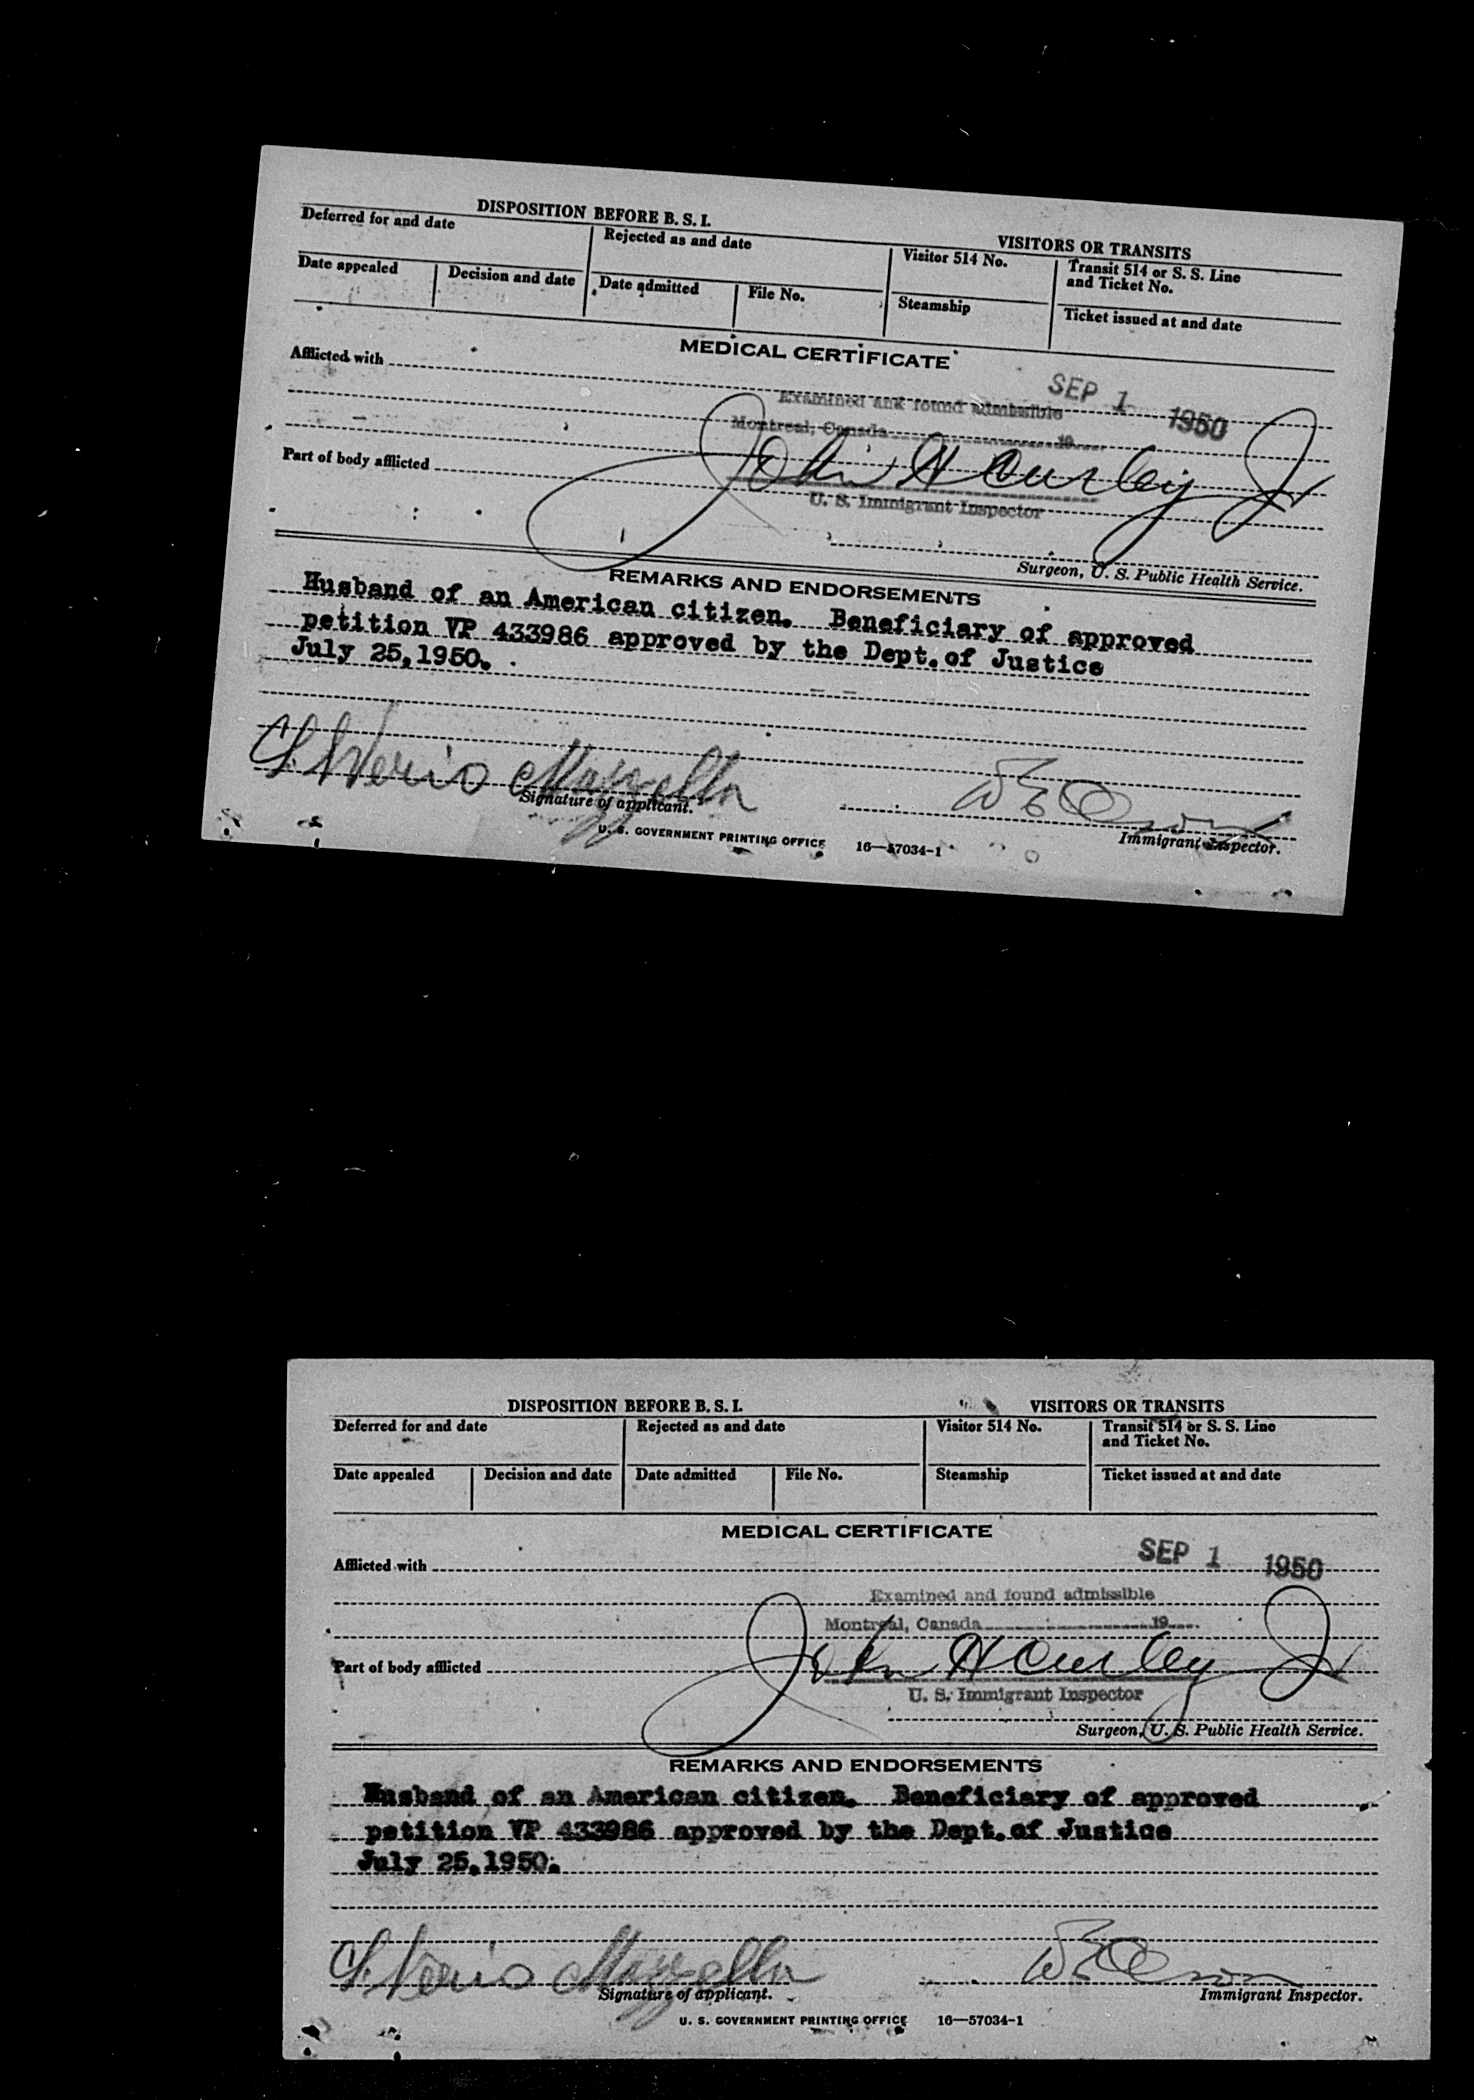 DISPOSITION BEFORE B. S. I.
VISITORS OR TRANSITS
Deferred for and date
Rejected as and date
Visitor 514 No.
Transit 514 or S. S. Line
and Ticket No.
Date appealed
Decision and date
Date admitted
File No.
Steamship
Ticket issued at and date
MEDICAL CERTIFICATE
Afflicted with
SEP 1 1950
Examined and found admissible
Montreal, Canada 19
Part of body afflicted
John H Curley Jr
U. S. Immigrant Inspector
Surgeon, U. S. Public Health Service.
REMARKS AND ENDORSEMENTS
Husband of an American citizen. Beneficiary of approved
petition VP 433986 approved by the Dept. of Justice
July 25, 1950.
Mazzella
Signature of applicant.
Immigrant Inspector.
U. S. GOVERNMENT PRINTING OFFICE 16—57034-1
DISPOSITION BEFORE B. S. I.
VISITORS OR TRANSITS
Deferred for and date
Rejected as and date
Visitor 514 No.
Transit 514 or S. S. Line
and Ticket No.
Date appealed
Decision and date
Date admitted
File No.
Steamship
Ticket issued at and date
MEDICAL CERTIFICATE
Afflicted with
SEP 1 1950
Examined and found admissible
Montreal, Canada 19
Part of body afflicted
John H Curley Jr
U. S. Immigrant Inspector
Surgeon, U. S. Public Health Service.
REMARKS AND ENDORSEMENTS
Husband of an American citizen. Beneficiary of approved
petition VP 433986 approved by the Dept. of Justice
July 25, 1950.
Mazzella
Signature of applicant.
Immigrant Inspector.
U. S. GOVERNMENT PRINTING OFFICE 16—57034-1